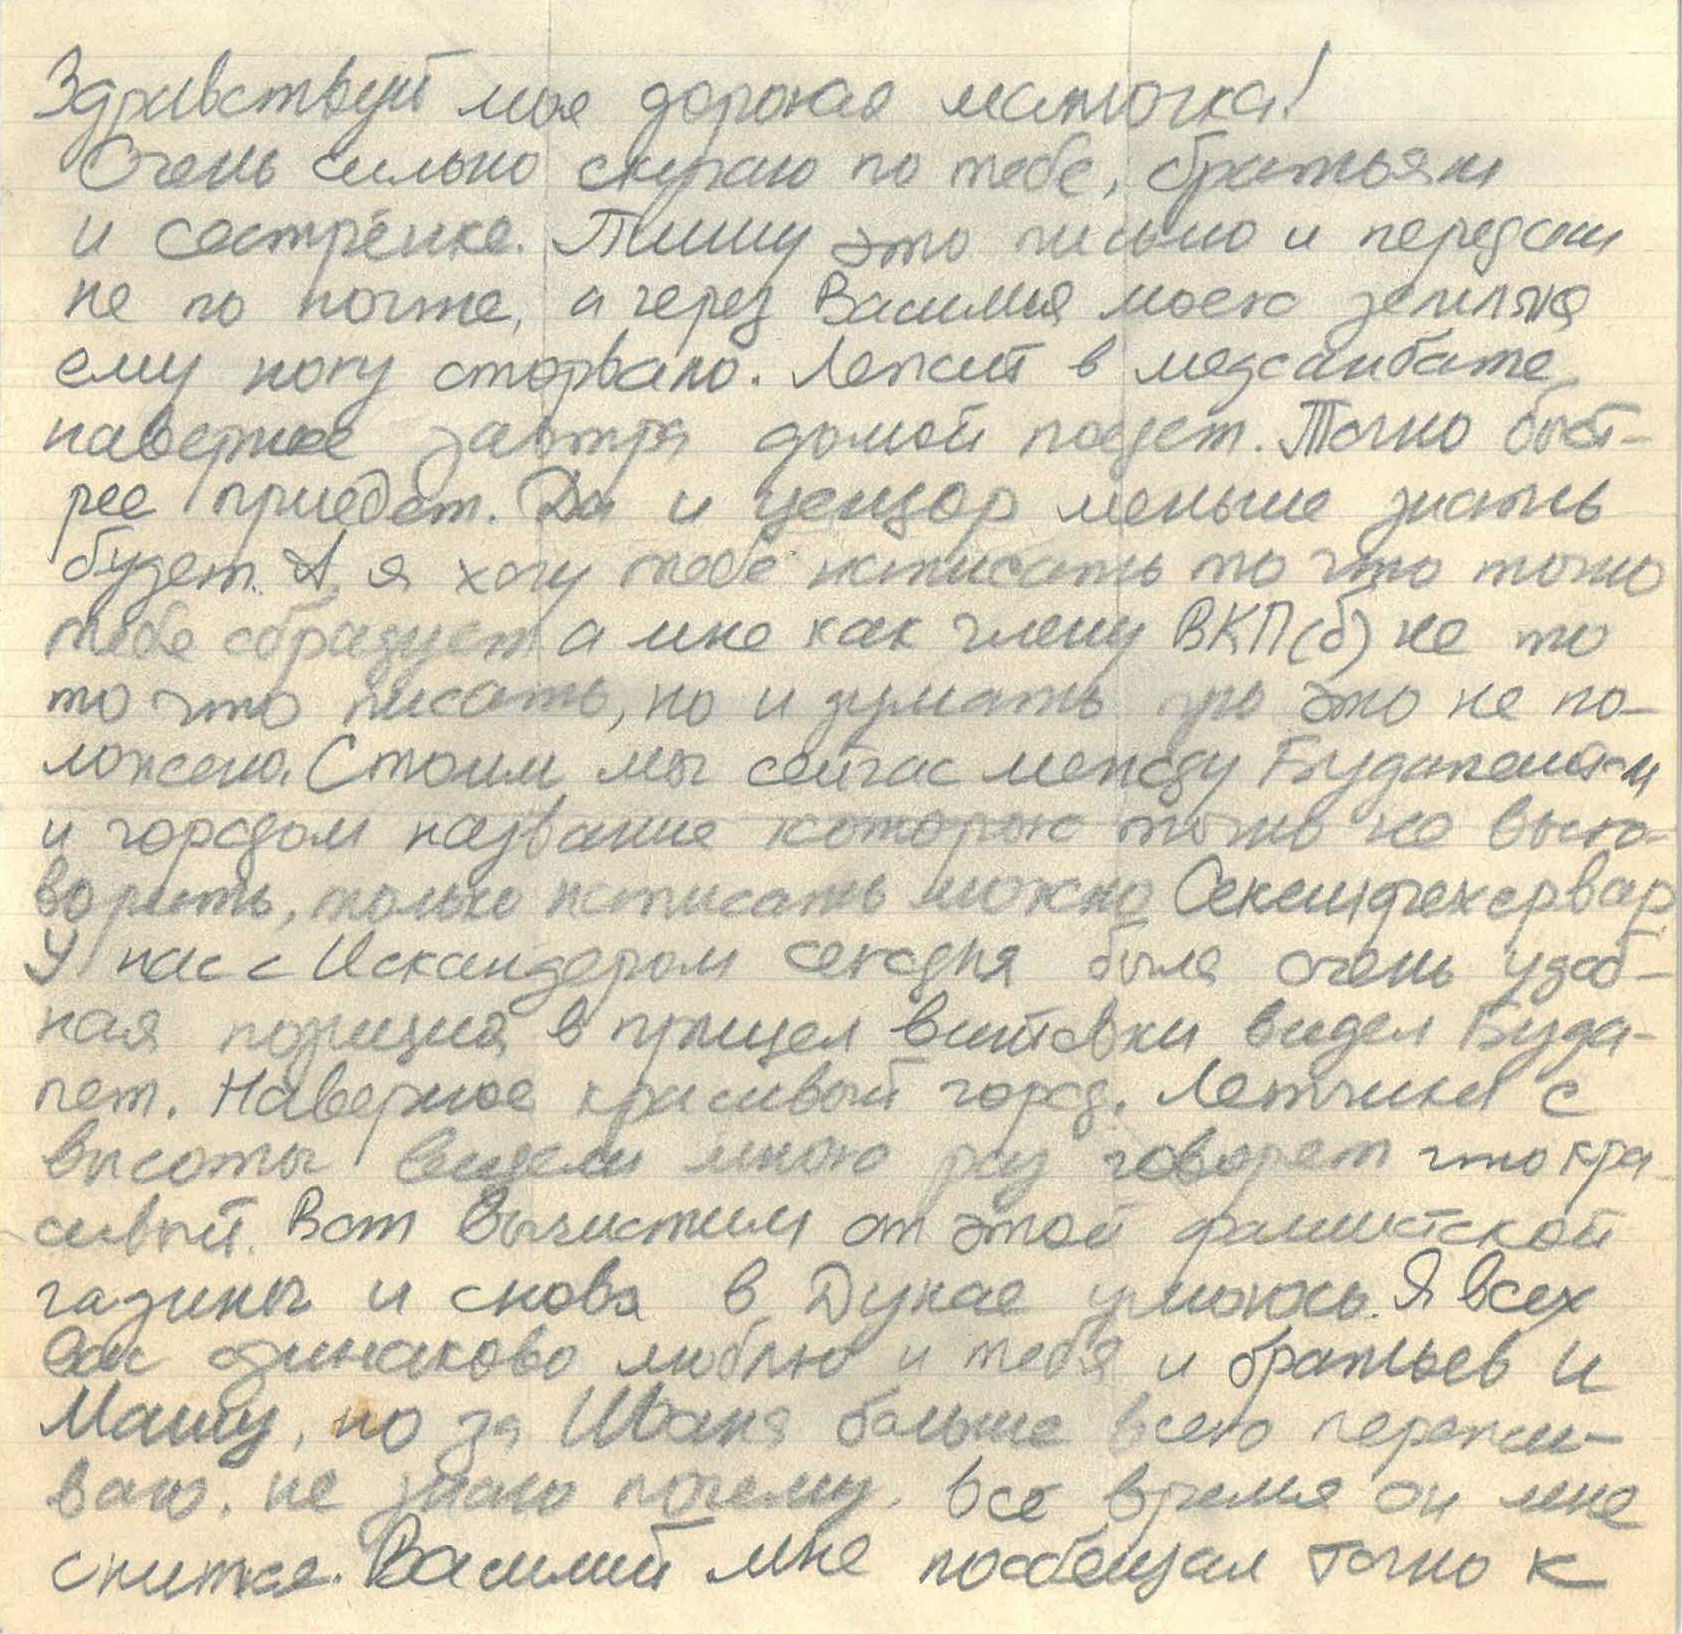 Здравствуй моя дорогая мамочка!
Очень сильно скучаю по тебе, братьям
и сестрёнке. Пишу это письмо и передам
не по почте, а через Василия моего земляка
ему ногу оторвало. Лежит в медсанбате
наверное завтра домой поедет. Точно быст-
рее приедет. Да и цензор меньше знать
будет. А, я хочу тебе написать то что точно
тебе обрадует а мне как члену ВКП(б) не то
то что писать, но и думать про это не по-
ложено. Стоим мы сейчас между Будапештом
и городом название которого точно не выго-
ворить, только написать можно Секешфехервар
У нас с Искандером сегодня была очень удоб-
ная позиция в прицел винтовки видел Буда-
пет. Наверное красивый город. Летчики с
высоты видели много раз говорят что кра-
сивый. Вот вычистим от этой фашистской
гадины и снова в Дунае умоюсь. Я всех
вас одинаково люблю и тебя и братьев и
Машу, но за Ивана больше всего пережи-
ваю. не знаю почему. всё время он мне
снится. Василий мне пообещал точно к